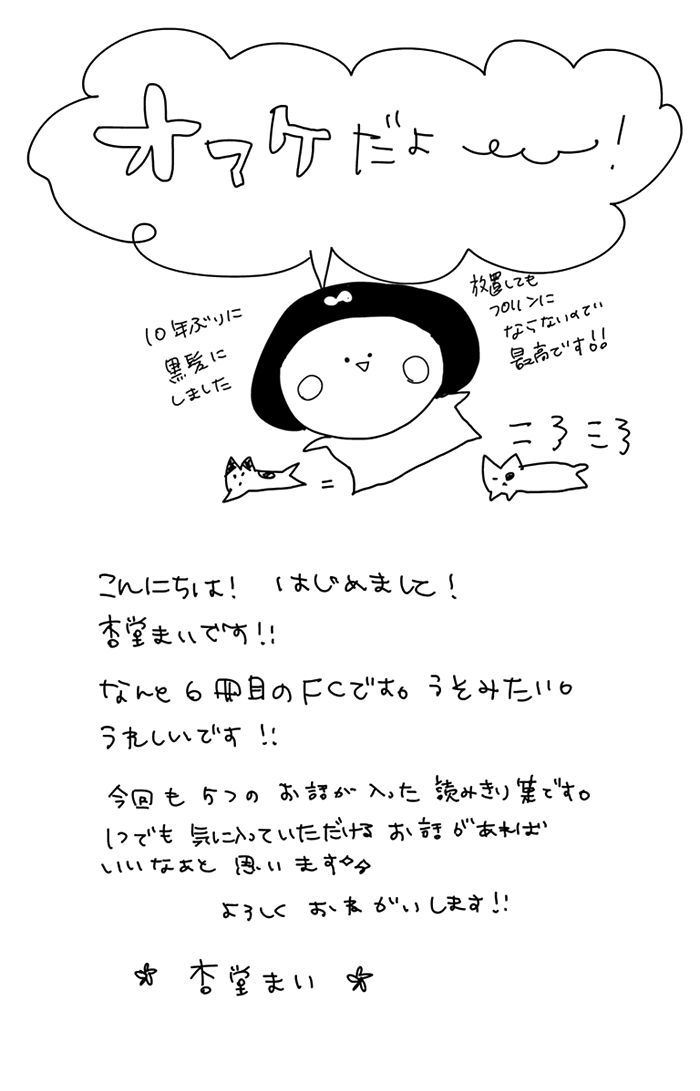 オマケだよ〜〜!
10年ぶりに
黒髪に
しました
放置しても
プリンに
ならないので
最高です!!
ころころ
こんにちは! はじめまして!
杏堂まいです!!
なんと6冊目のFCです。うそみたい。
うれしいです!!
今回も5つのお話が入った読みきり集です。
1つでも気に入っていただけるお話があれば
いいなぁと思います
よろしくおねがいします!!
杏堂まい